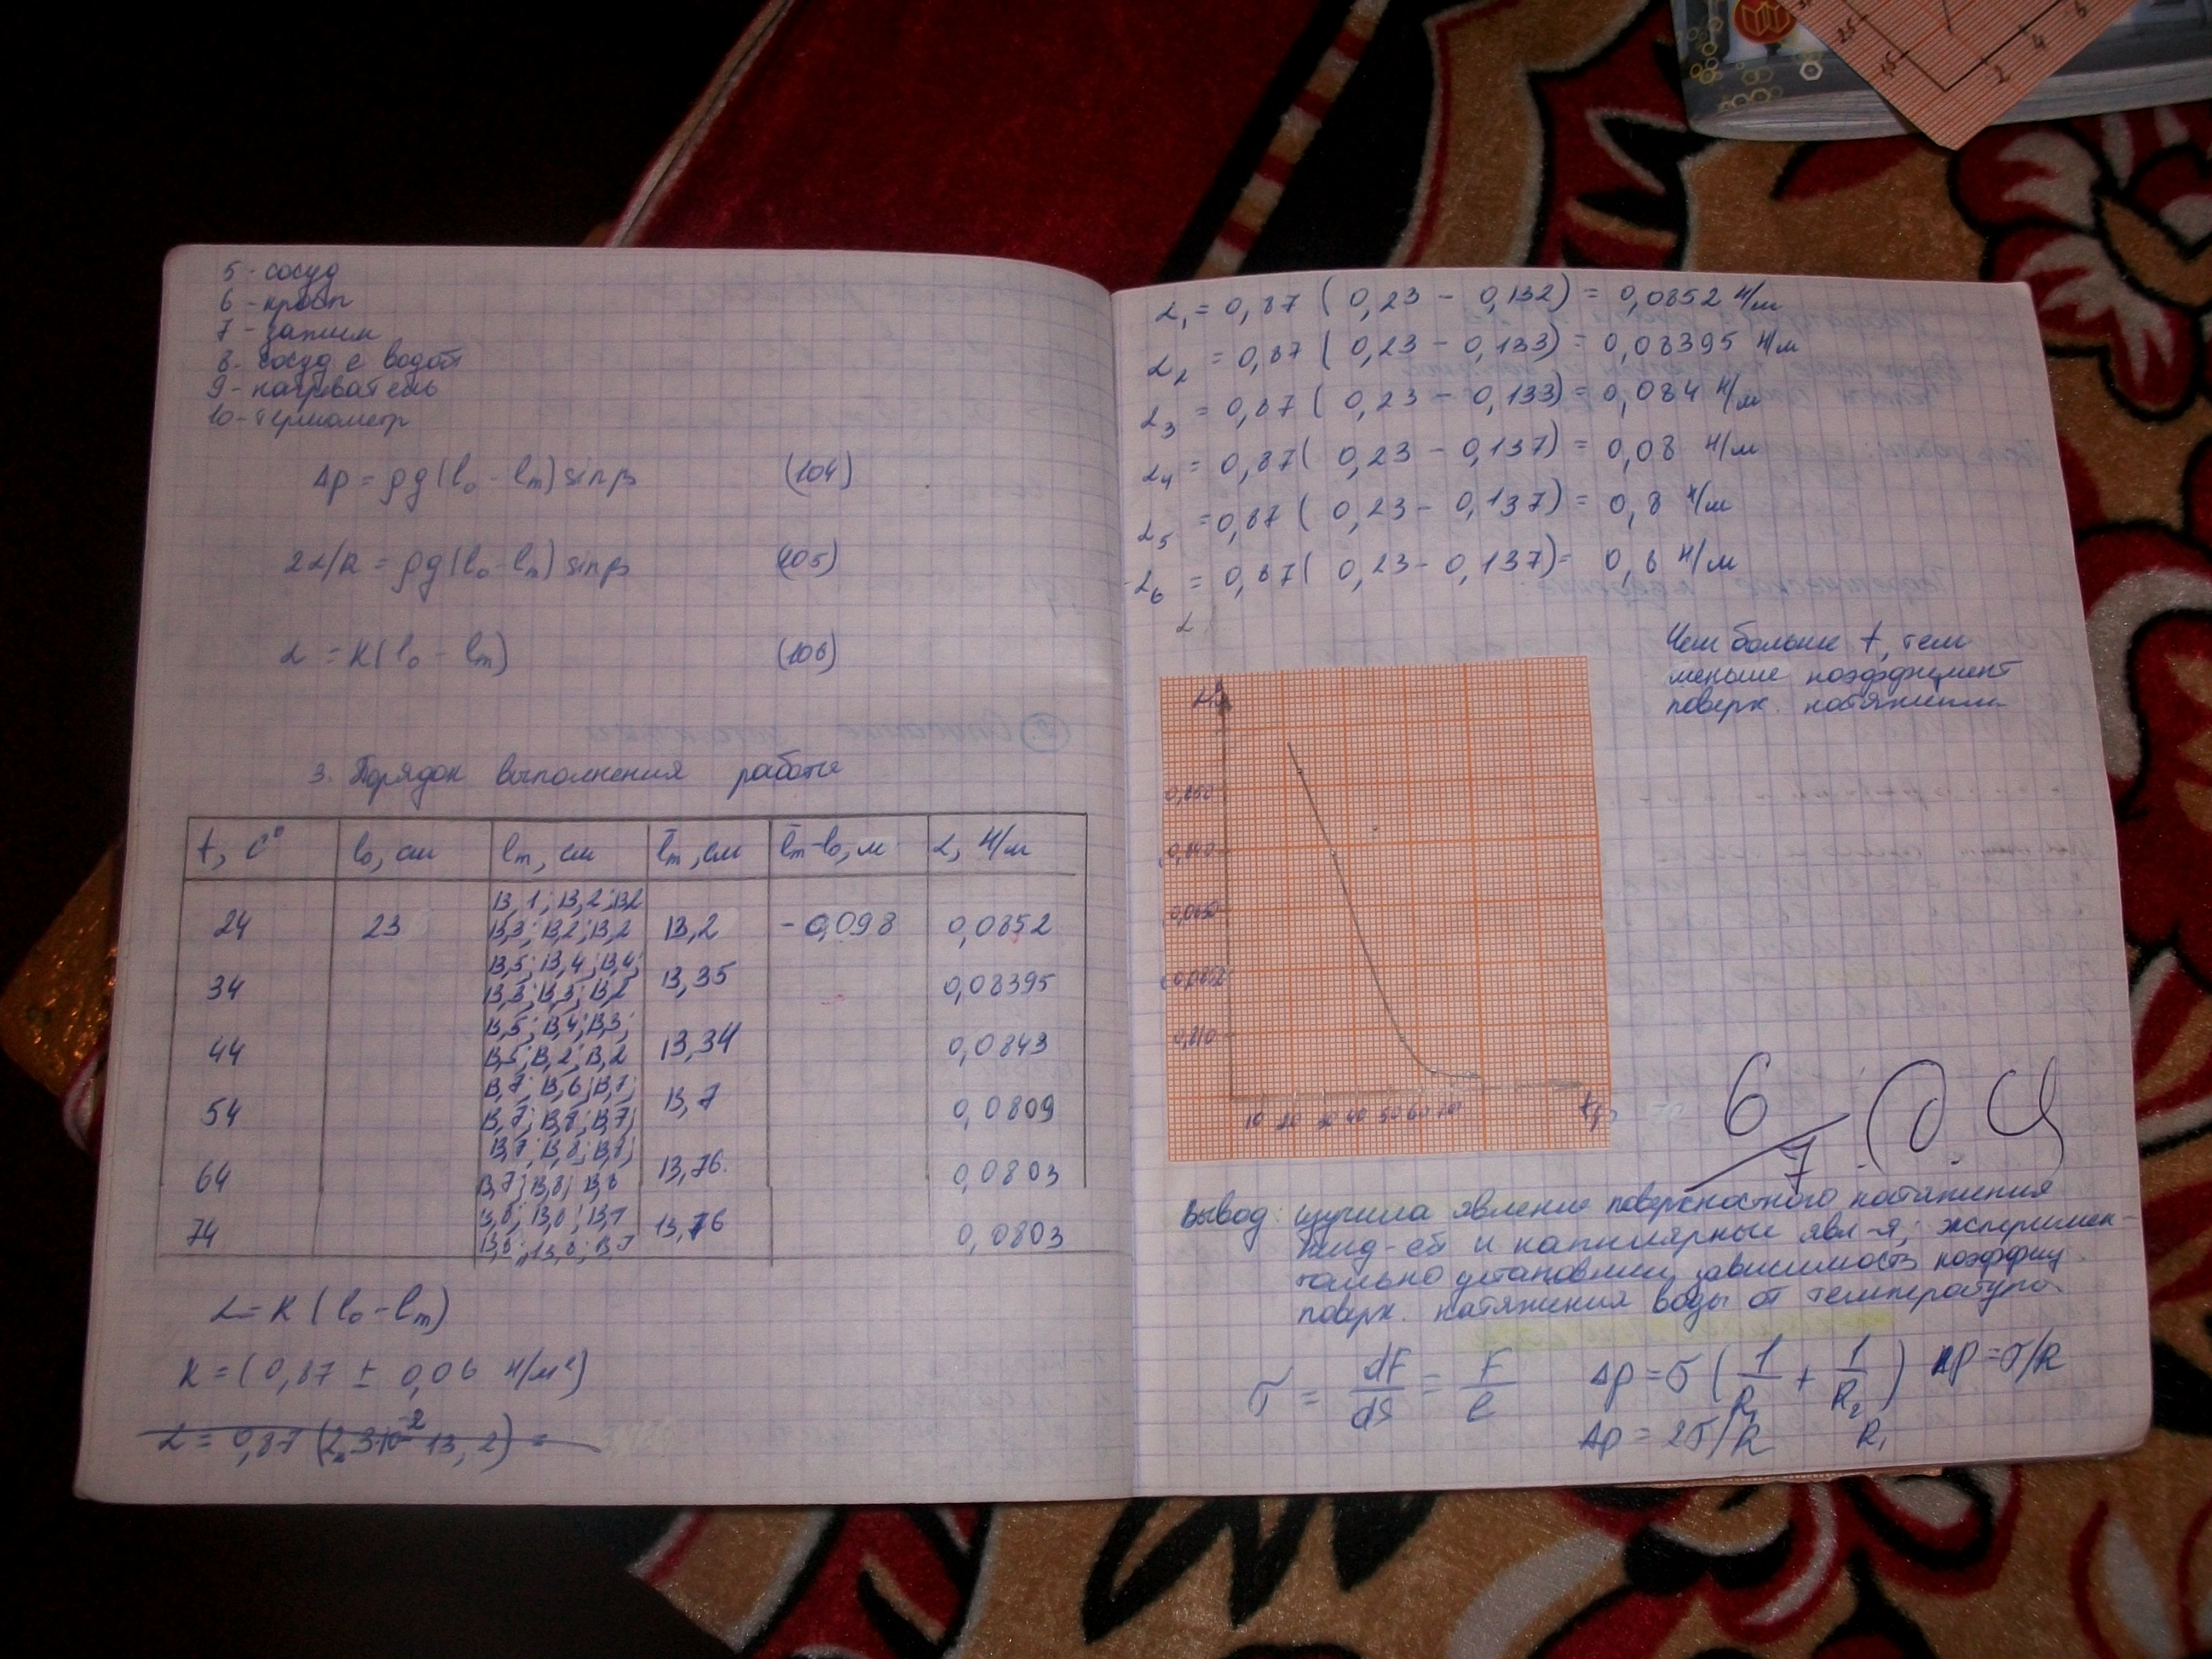 5 - сосуд
6 - кран
7 - зажим
8 - сосуд с водой
9 - нагреватель
10 - термометр
Δp = ρg(l₀ - lₘ) sinβ (104)
2α/R = ρg(l₀ - lₘ) sinβ (105)
α = K(l₀ - lₘ) (106)
3. Порядок выполнения работы
t, C° l₀, см lₘ, см l̄ₘ, см l̄ₘ-l₀, м α, Н/м
24 23 13,1; 13,2; 13,2 13,3; 13,2; 13,2 13,2 -0,098 0,0852
34 13,5; 13,4; 13,4; 13,3; 13,3; 13,2 13,35 0,08395
44 13,5; 13,4; 13,3; 13,5; 13,2; 13,2 13,34 0,0843
54 13,7; 13,6; 13,7; 13,7; 13,8; 13,7; 13,7 0,0809
64 13,7; 13,8; 13,8; 13,7; 13,8; 13,8 13,76. 0,0803
74 13,8; 13,8; 13,7 13,8; 13,8; 13,7 13,76 0,0803
α = K (l₀ - lₘ)
K = (0,87 ± 0,06 Н/м²)
α = 0,87 (2,3·10⁻² 13,2) =
α₁ = 0,87 ( 0,23 - 0,132) = 0,0852 Н/м
α₂ = 0,87 ( 0,23 - 0,133) = 0,08395 Н/м
α₃ = 0,87 ( 0,23 - 0,133) = 0,084 Н/м
α₄ = 0,87( 0,23 - 0,137) = 0,08 Н/м
α₅ = 0,87 ( 0,23 - 0,137) = 0,8 Н/м
α₆ = 0,87( 0,23 - 0,137) = 0,6 Н/м
α
Чем больше t, тем
меньше коэффициент
поверх. натяжения
0,810
10 20 30 40 50 60 70
6
7
Вывод: изучила явление поверхностного натяжения
жид-ей и капилярные явл-я; эксперимен-
тально установили зависимость коэффиц.
поверх. натяжения воды от температуры.
σ = dF/dS = F/l Δp = σ (1/R₁ + 1/R₂) Δp = σ/R
Δp = 2σ/R R₁